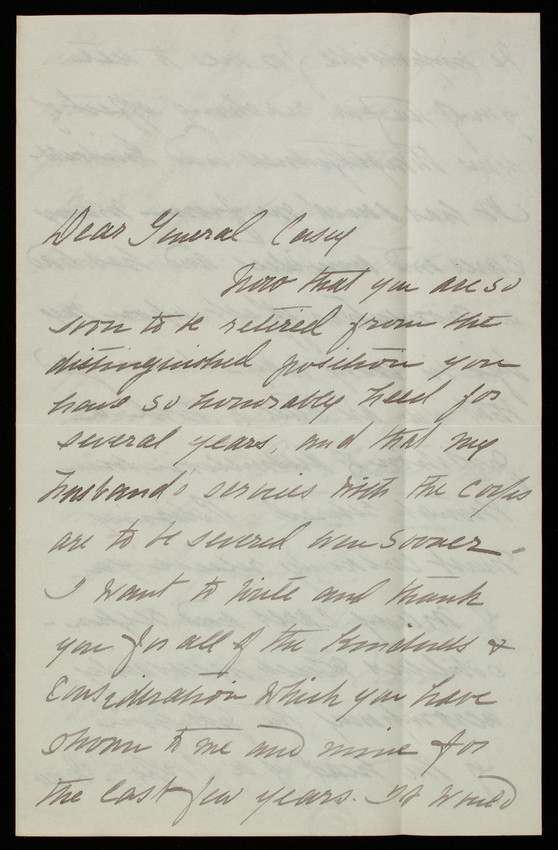 Dear General Casey
Now that you are so
soon to be retired from the
distinguished position you
have so honorably held for
several years, and that my
husband's services with the Corps
are to be severed even sooner -
I want to write and thank
you for all of the kindness &
consideration which you have
shown to me and mine for
the last few years. It would